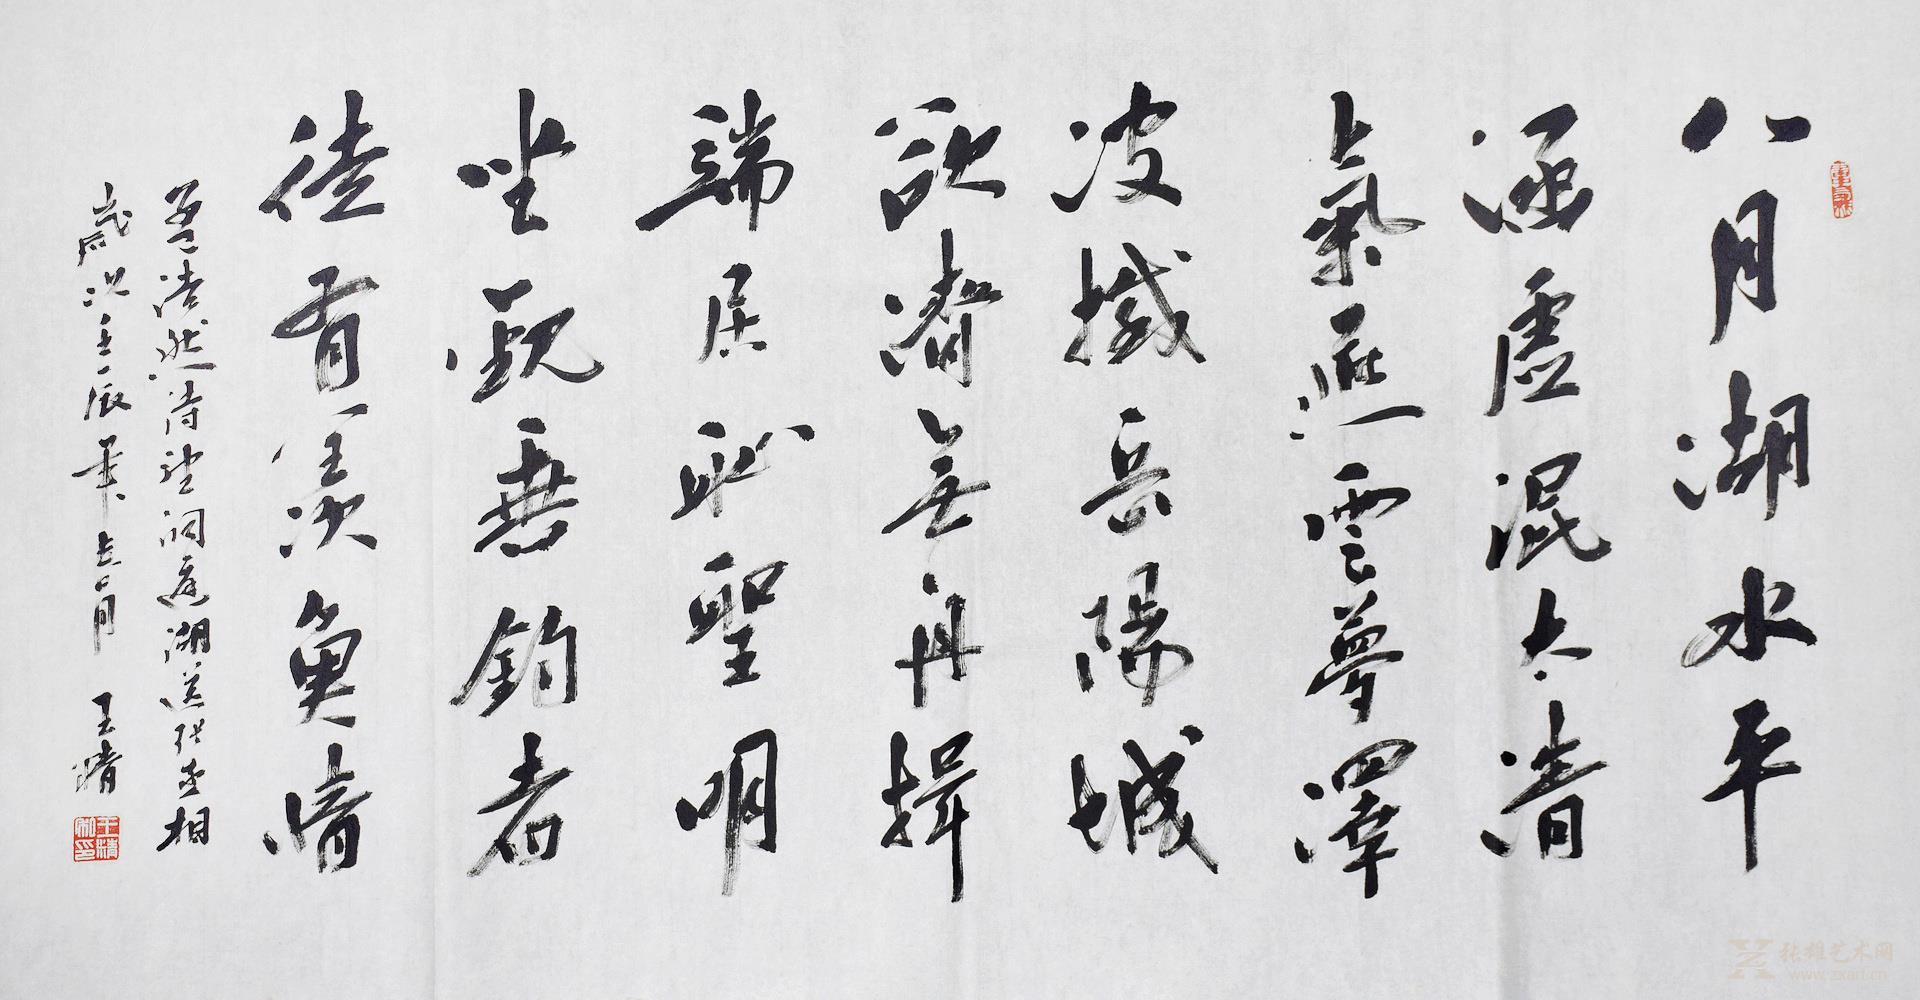 八月湖水平
涵虛混太清
氣蒸雲夢澤
波撼岳陽城
欲濟無舟楫
端居恥聖明
坐觀垂釣者
徒有羨魚情
孟浩然詩望洞庭湖送張丞相
歲次壬辰年 月 王清
王清私印
张雄艺术网
www.zxart.cn